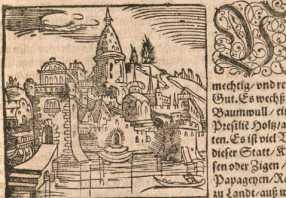 mechtig / vnd re
Gut. Es wechß
Baumwull / ei
Presilie Holtz / a
ten. Es ist viel
dieser Statt / K
sen oder Zigen /
Papageyen / Re
zu Landt / auß w